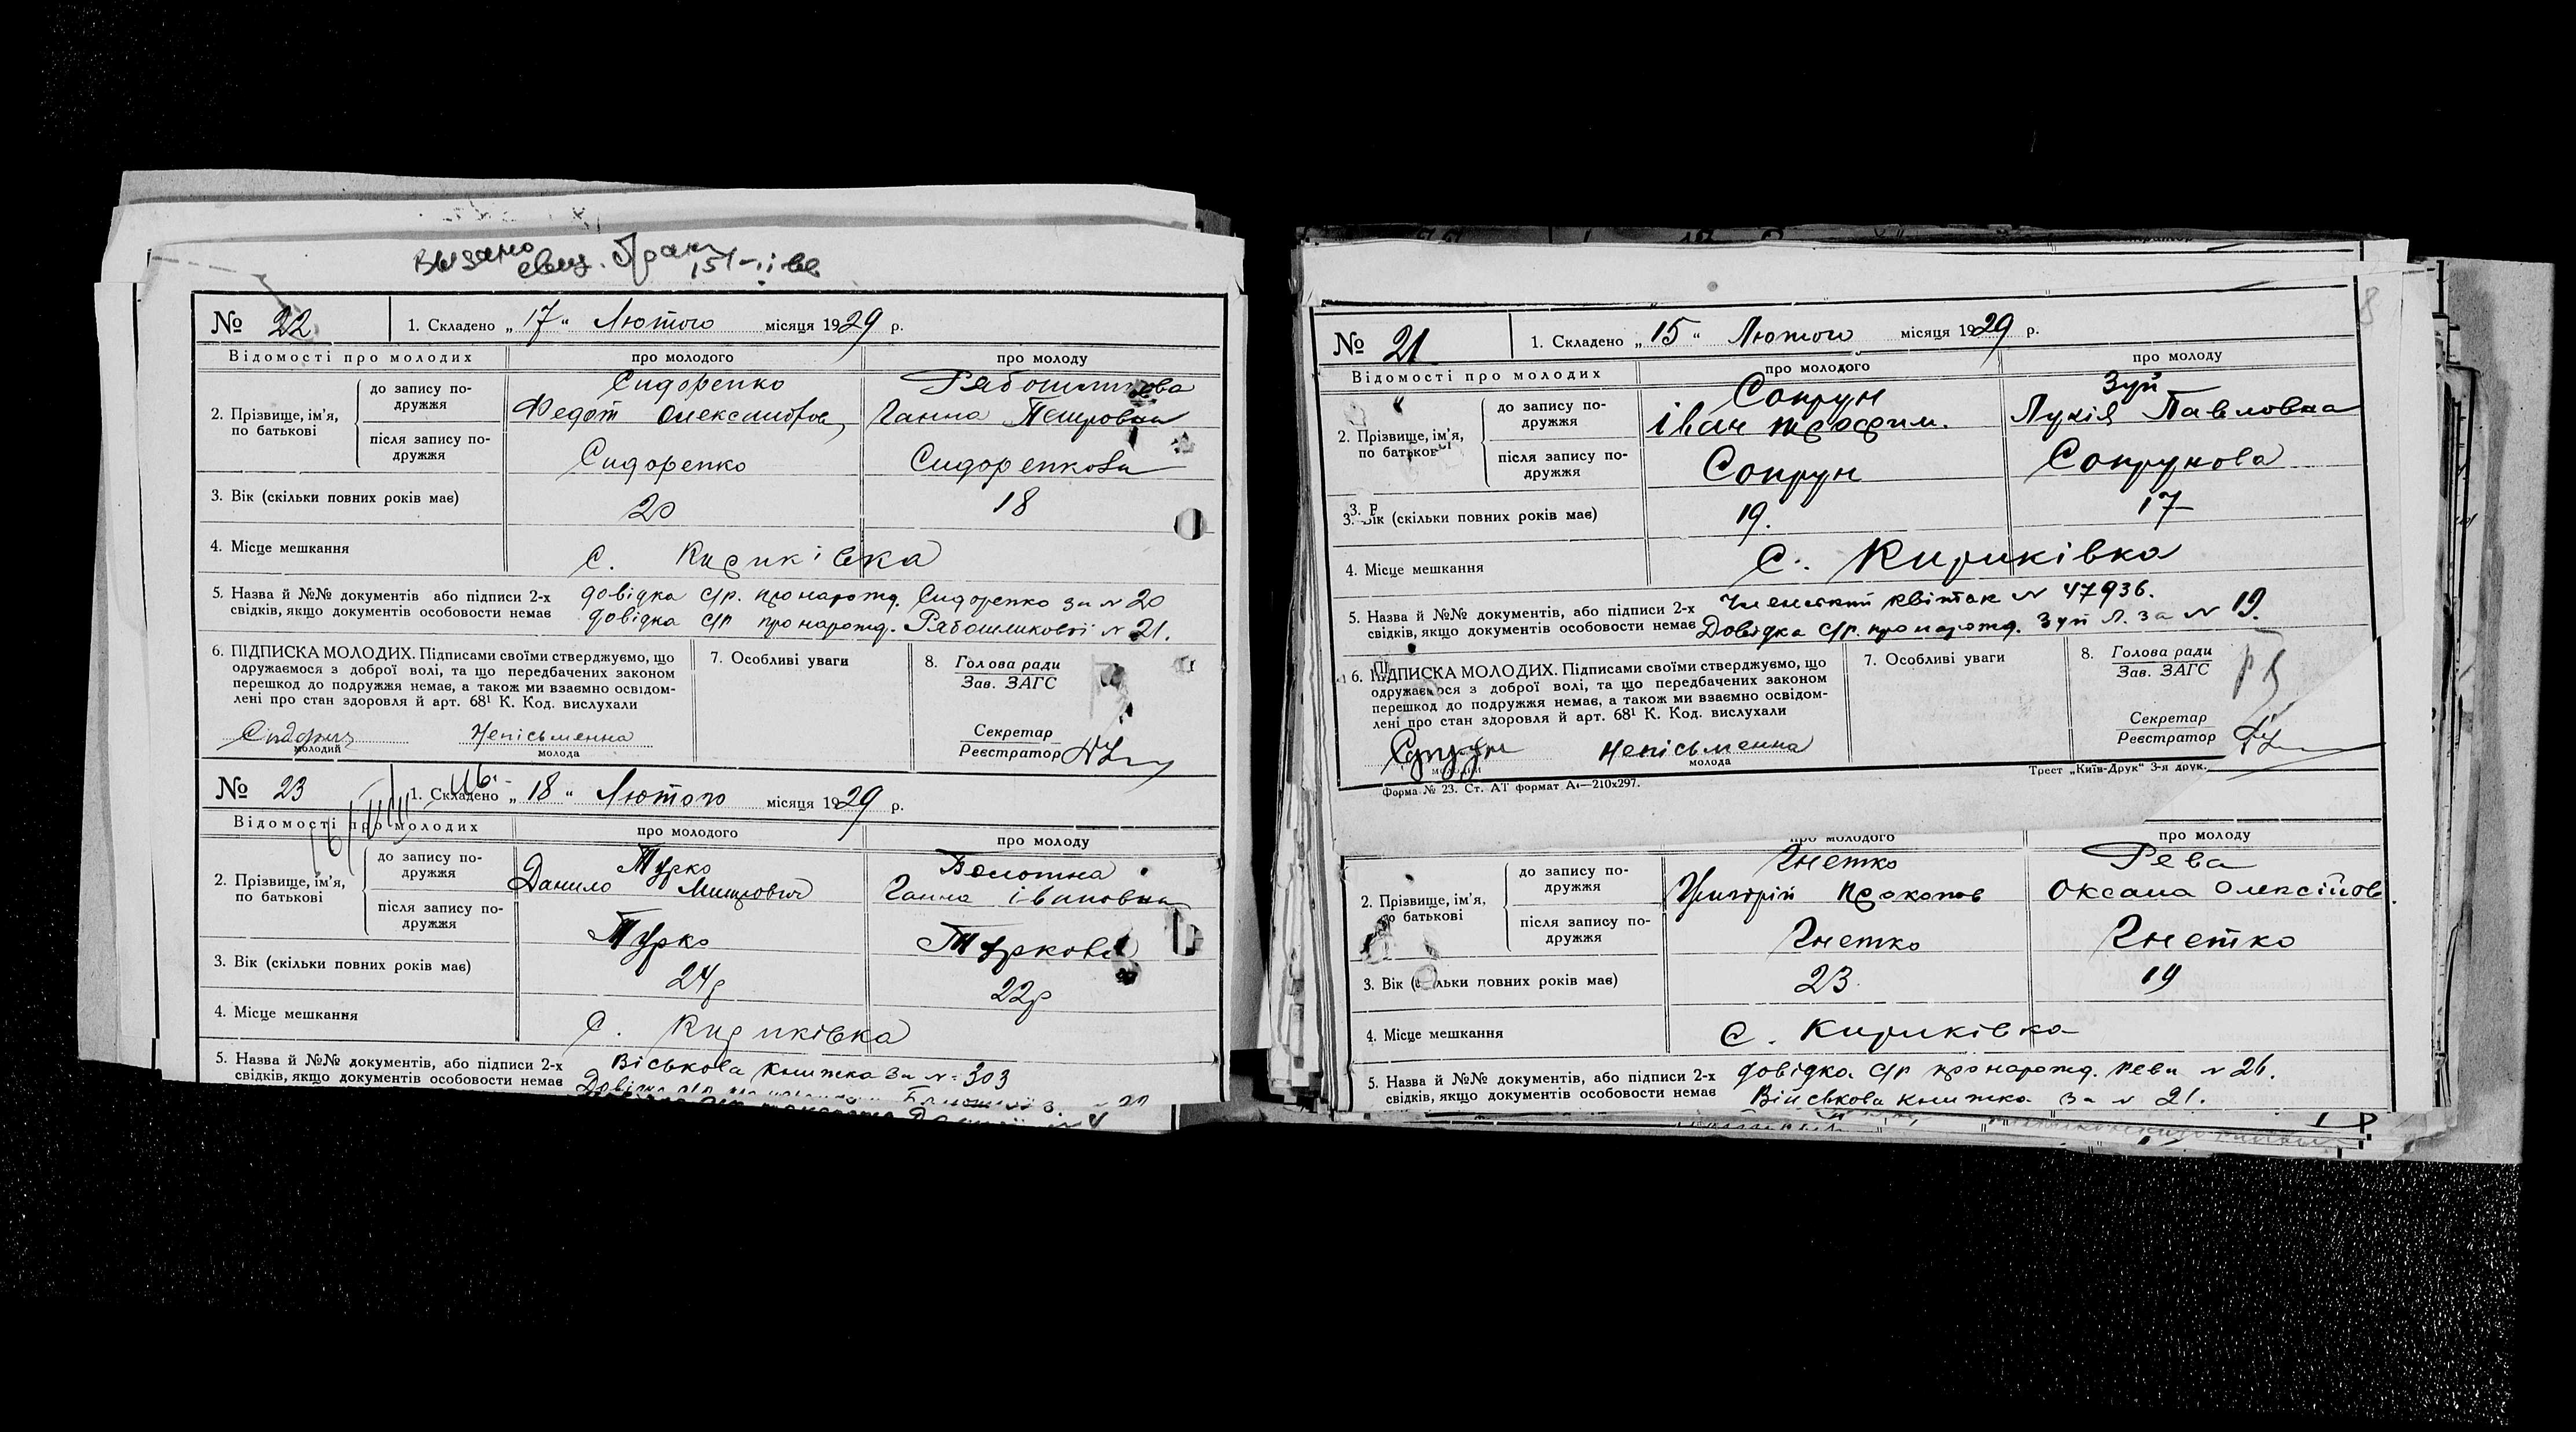 Выдано
свид.
№ 22
1. Складено „ 17 “ Лютого місяця 1929 р.
Відомості про молодих
про молодого
про молоду
2. Прізвище, ім’я, по батькові
до запису подружжя
Сидоренко
Федот Олександров
Ганна Петровна
після запису подружжя
Сидоренко
Сидоренкова
3. Вік (скільки повних років має)
20
18
4. Місце мешкання
с. Кириківка
5. Назва й №№ документів або підписи 2-х
свідків, якщо документів особовости немає
довідка с/р. про нарожд. Сидоренко за № 20
довідка с/р про нарожд. Рябошликової № 21.
6. ПІДПИСКА МОЛОДИХ. Підписами своїми стверджуємо, що
одружаємося з доброї волі, та що передбачених законом
перешкод до подружжя немає, а також ми взаємно освідом-
лені про стан здоровля й арт. 68¹ К. Код. вислухали
молодий
Непісьменна
молода
7. Особливі уваги
8. Голова ради
Зав. ЗАГС
Секретар
Реєстратор
№ 23
1. Складено „ 18 “ Лютого місяця 1929 р.
Відомості про молодих
про молодого
про молоду
2. Прізвище, ім’я, по батькові
до запису подружжя
Турко
Данило
Болотна
Ганна Івановна
після запису подружжя
Турко
Туркова
3. Вік (скільки повних років має)
24р
22р
4. Місце мешкання
с. Кириківка
5. Назва й №№ документів, або підписи 2-х
свідків, якщо документів особовости немає
Віськова книжка за № 303
№ 21
1. Складено „ 15 “ Лютого місяця 1929 р.
Відомості про молодих
про молодого
про молоду
2. Прізвище, ім’я, по батькові
до запису подружжя
Сопрун
Іван Трофим.
Зуй
Лукія Павловна
після запису подружжя
Сопрун
Сопрунова
3. Вік (скільки повних років має)
19.
17
4. Місце мешкання
с. Кириківка
5. Назва й №№ документів, або підписи 2-х
свідків, якщо документів особовости немає
Членський квіток № 47936.
Довідка с/р. про нарожд. Зуй Л. за № 19.
6. ПІДПИСКА МОЛОДИХ. Підписами своїми стверджуємо, що
одружаємося з доброї волі, та що передбачених законом
перешкод до подружжя немає, а також ми взаємно освідом-
лені про стан здоровля й арт. 68¹ К. Код. вислухали
Супрун
молодий
Непісьменна
молода
7. Особливі уваги
8. Голова ради
Зав. ЗАГС
Секретар
Реєстратор
Форма № 23. Ст. АТ формат А4—210x297.
Трест „Київ-Друк“ 3-я друк.
про молодого
про молоду
2. Прізвище, ім’я, по батькові
до запису подружжя
Гнетко
Григорій Прокопов
Рева
Оксана Олексійов.
після запису подружжя
Гнетко
Гнетко
3. Вік (скільки повних років має)
23
19
4. Місце мешкання
с. Кириківка
5. Назва й №№ документів, або підписи 2-х
свідків, якщо документів особовости немає
довідка с/р про нарожд. Реви № 26.
Військова книжка за № 21.